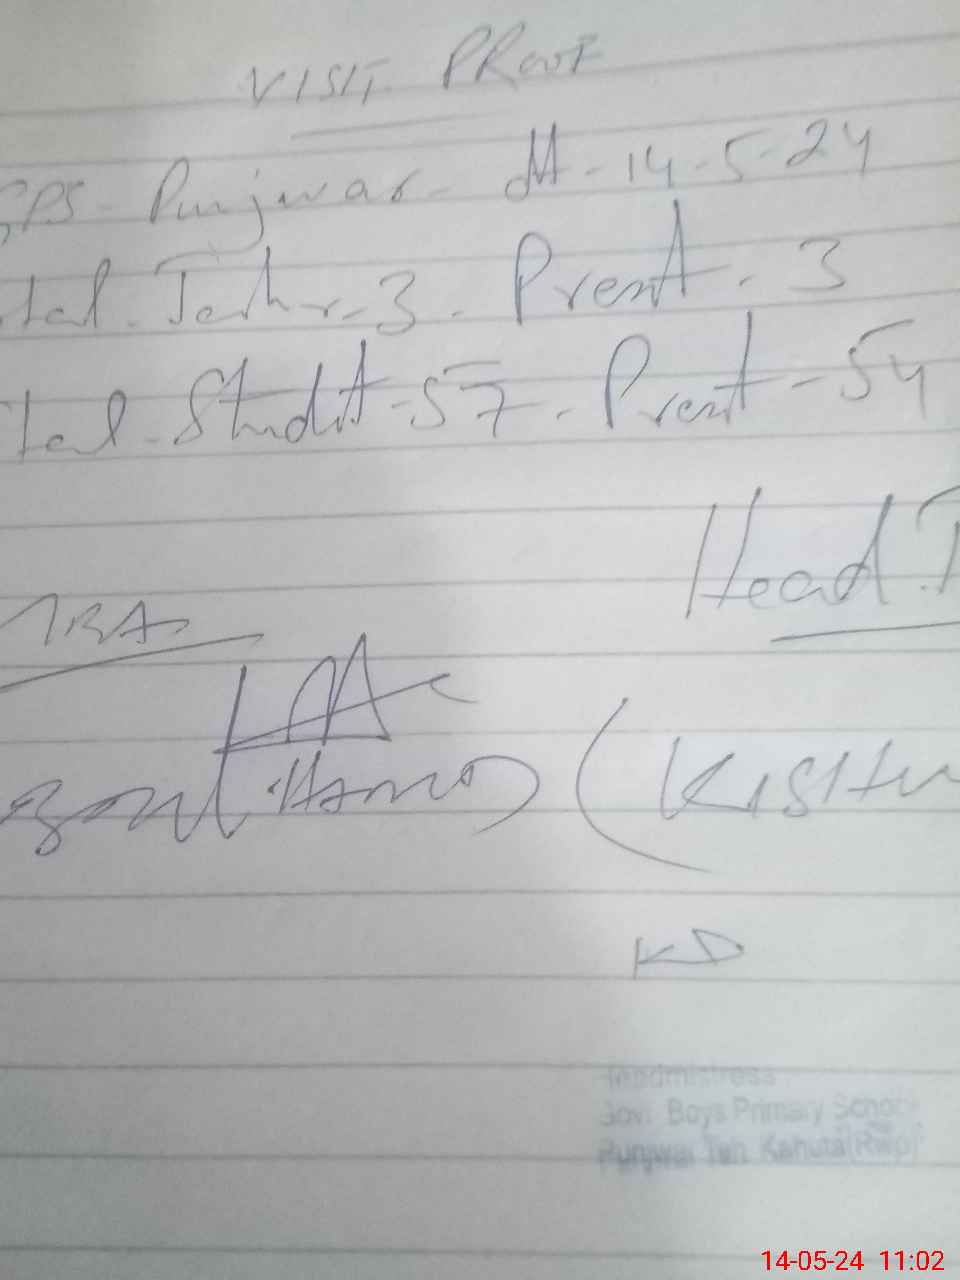 VISIT PRooF
GPS - Punjwar - dt - 14-5-24
tal - Techr - 3 - Presnt - 3
tal - Studnt - 57 - Presnt - 54
Head T
(KISHW
KD
Headmistress
Govt. Boys Primary School
Punjwar Teh Kahuta(Rwp)
14-05-24 11:02